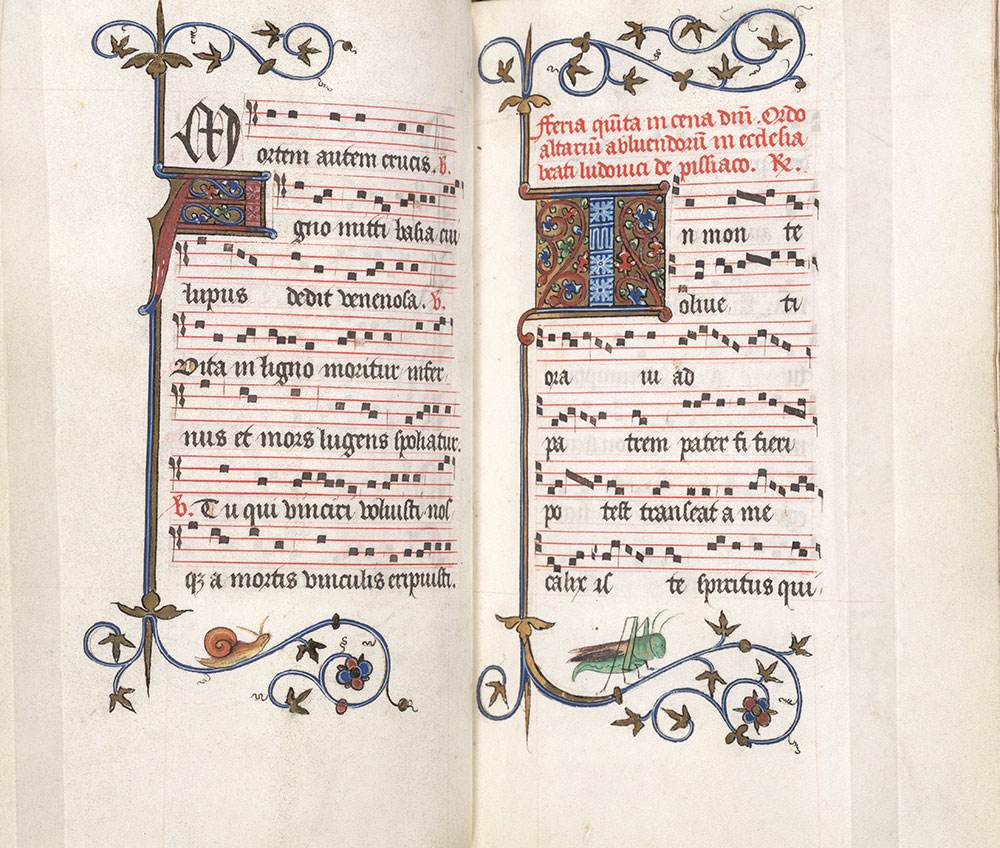 Mortem autem crucis. V.
Agno mitti basia cui
lupus dedit venenosa. V.
Vita in ligno moritur infer
nus et mors lugens spoliatur.
V. Tu qui vinciri voluisti nos
qȝ a mortis vinculis eripuisti.
fferia qu̅ta in cena dn̅i. Ordo
altariu̅ abluendoru̅ in ecclesia
beati ludouici de pissiaco. R.
In mon te
oliue ti
ora ui ad
pa trem pater si fieri
po test transeat a me
calix is te spiritus qui